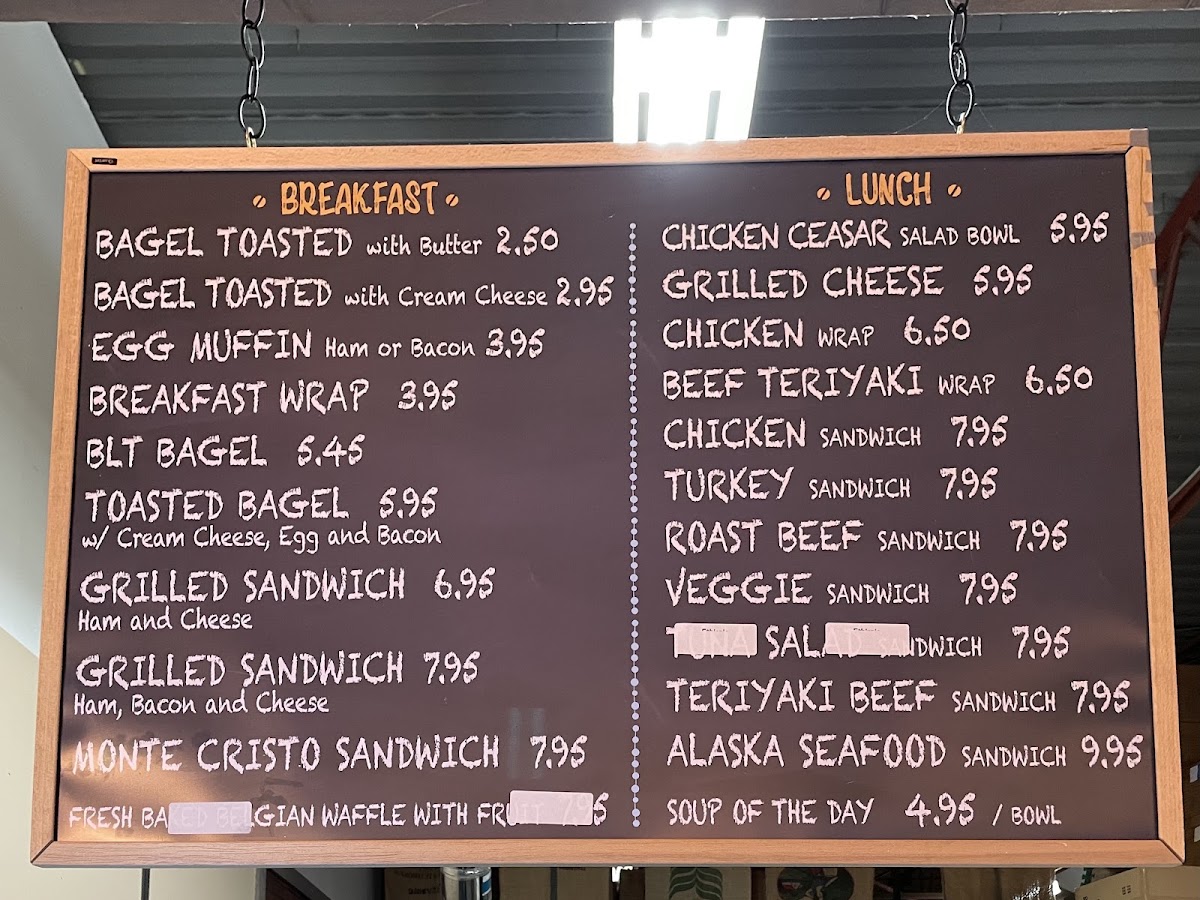 • BREAKFAST •
BAGEL TOASTED with Butter 2.50
BAGEL TOASTED with Cream Cheese 2.95
EGG MUFFIN Ham or Bacon 3.95
BREAKFAST WRAP 3.95
BLT BAGEL 5.45
TOASTED BAGEL 5.95
w/ Cream Cheese, Egg and Bacon
GRILLED SANDWICH 6.95
Ham and Cheese
GRILLED SANDWICH 7.95
Ham, Bacon and Cheese
MONTE CRISTO SANDWICH 7.95
FRESH BAKED BELGIAN WAFFLE WITH FRUIT 7.95
• LUNCH •
CHICKEN CEASAR SALAD BOWL 5.95
GRILLED CHEESE 5.95
CHICKEN WRAP 6.50
BEEF TERIYAKI WRAP 6.50
CHICKEN SANDWICH 7.95
TURKEY SANDWICH 7.95
ROAST BEEF SANDWICH 7.95
VEGGIE SANDWICH 7.95
TUNA SALAD SANDWICH 7.95
TERIYAKI BEEF SANDWICH 7.95
ALASKA SEAFOOD SANDWICH 9.95
SOUP OF THE DAY 4.95 / BOWL